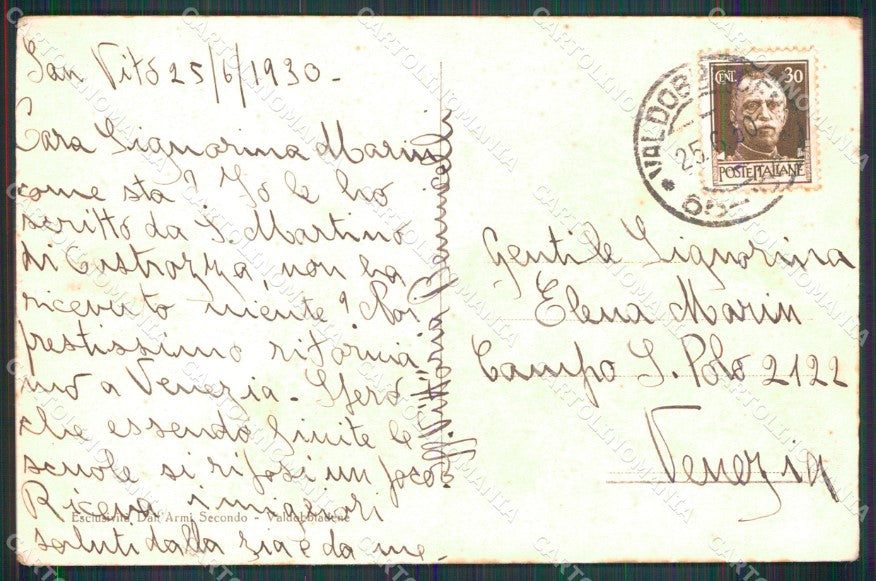 San Vito 25/6/1930-
Cara Signorina Marin
come sta? Io le ho
scritto da S. Martino
di Castrozza, non ha
ricevuto niente? Noi
prestissimo ritornia
mo a Venezia. Spero
che essendo finite le
scuole si riposi un poco.
Riceva i migliori
saluti dalla zia e da me.
Vittoria
Esclusività Dall'Armi Secondo - Valdobbiadene
CENT. 30
POSTE ITALIANE
VALDOBBIADENE
25.6.30
Gentile Signorina
Elena Marin
Campo S. Polo 2122
Venezia
CARTOLINOMANIA